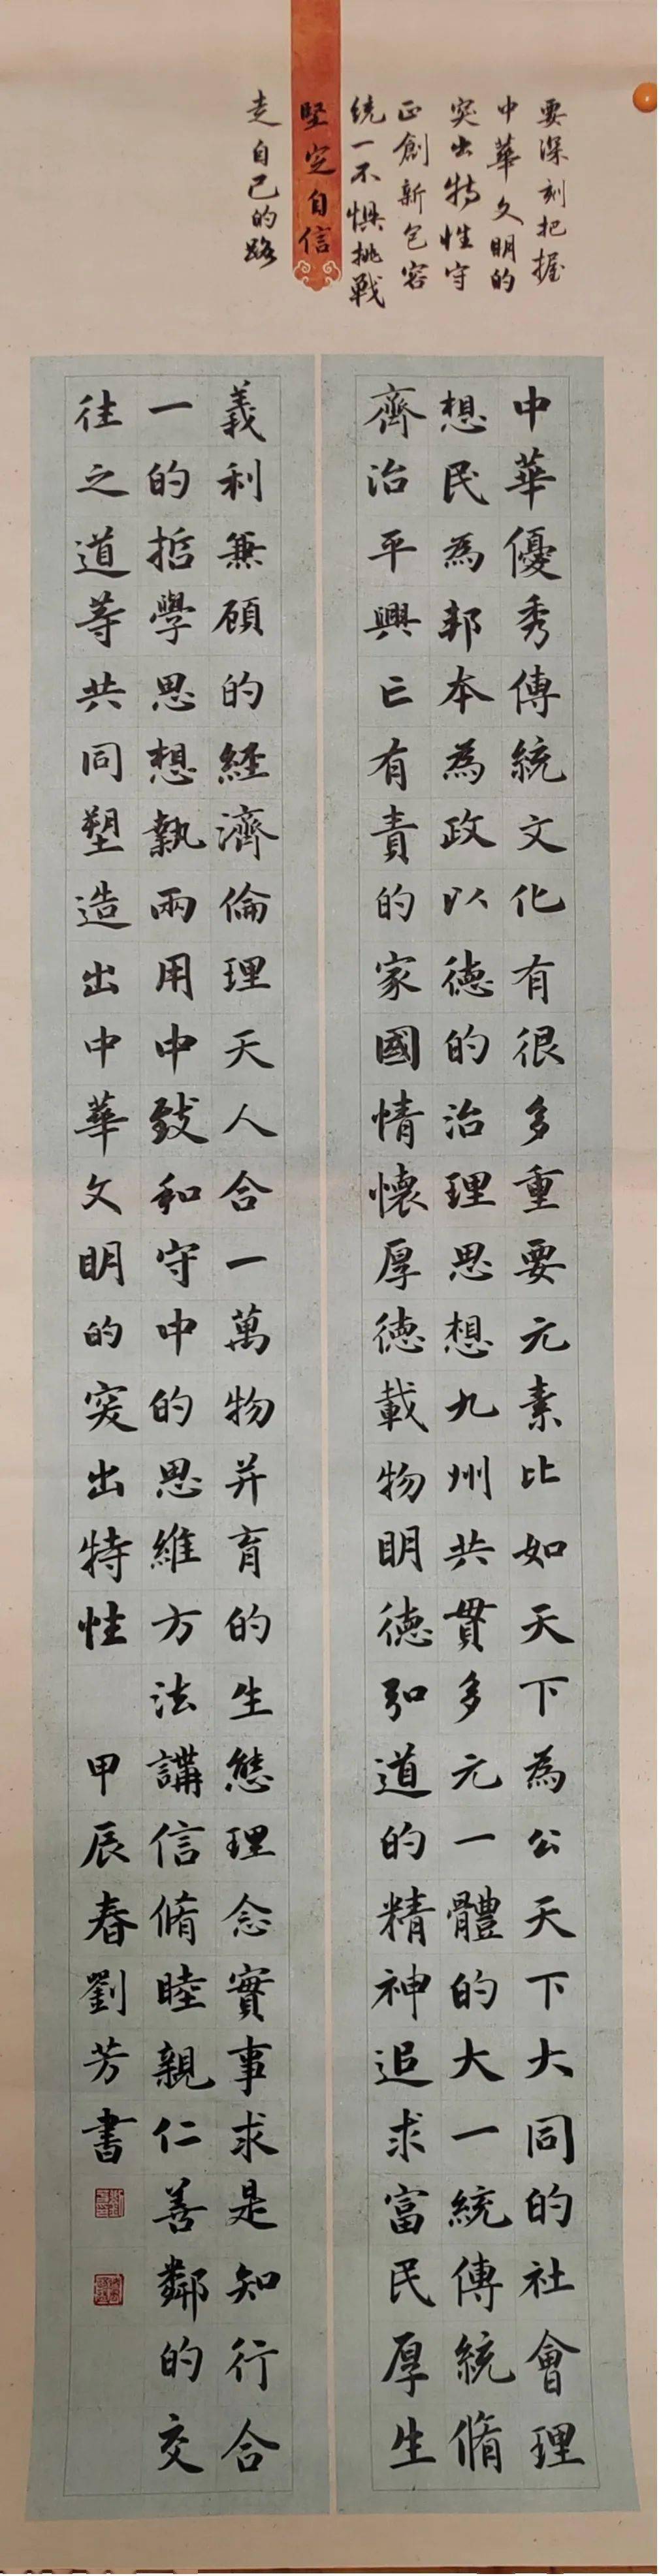 要深刻把握
中華文明的
突出特性守
正創新包容
統一不懼挑戰
堅定自信
走自己的路
中華優秀傳統文化有很多重要元素比如天下為公天下大同的社會理
想民為邦本為政以德的治理思想九州共貫多元一體的大一統傳統脩
齊治平興亡有責的家國情懷厚德載物明德弘道的精神追求富民厚生
義利兼顧的經濟倫理天人合一萬物并育的生態理念實事求是知行合
一的哲學思想執兩用中致和守中的思維方法講信脩睦親仁善鄰的交
往之道等共同塑造出中華文明的突出特性 甲辰春劉芳書